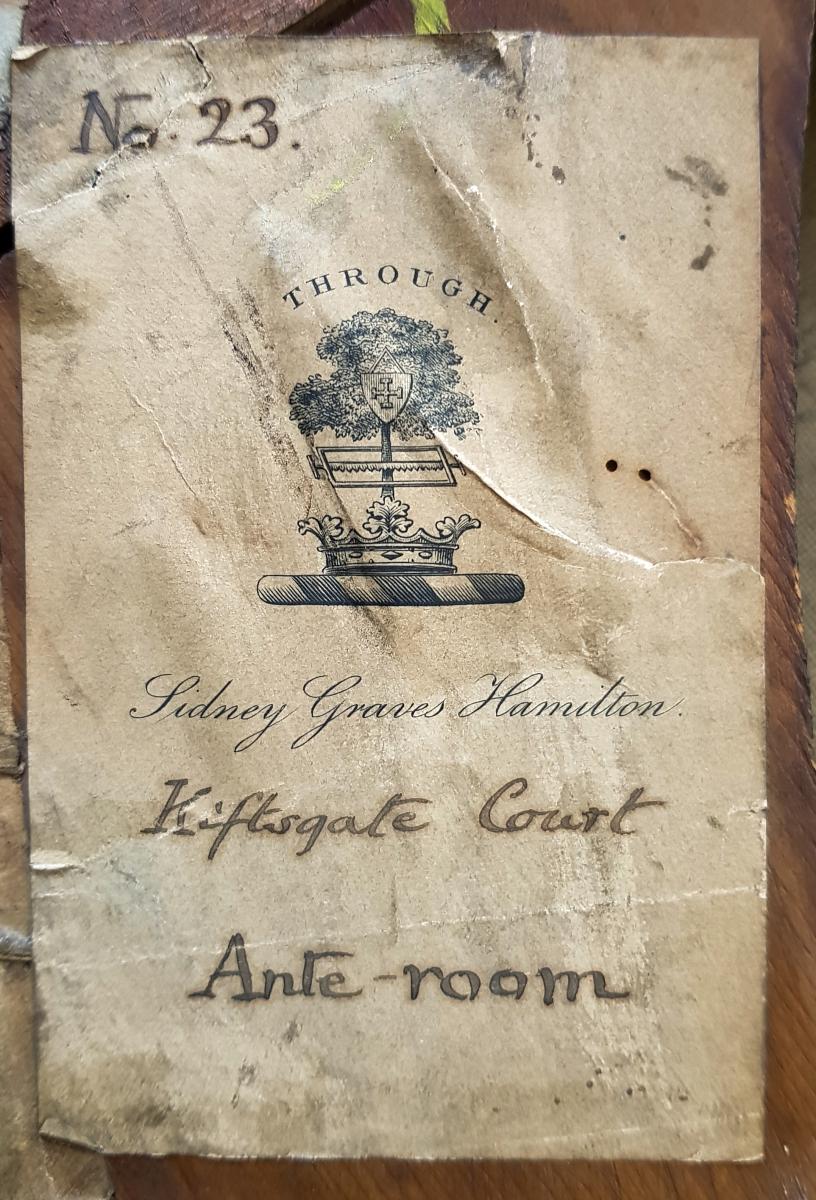 No. 23.
THROUGH.
Sidney Graves Hamilton.
Kiftsgate Court
Ante-room